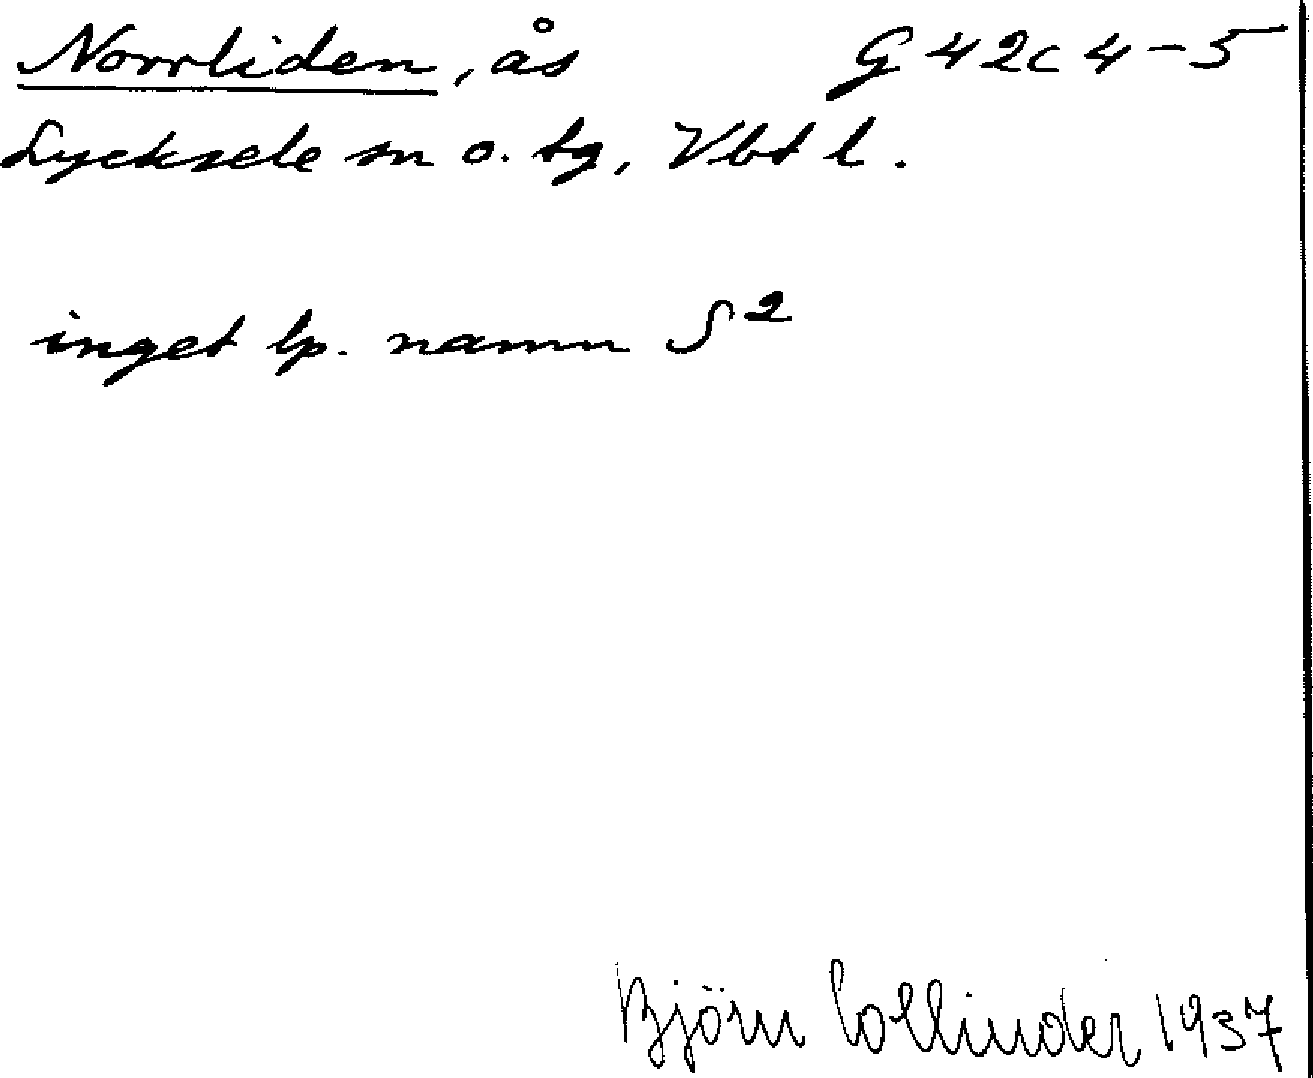 Norrliden, ås G 42c 4-5
Lycksele sn o. tg, Vbt l.
inget lp. namn S²
Björn Collinder 1937